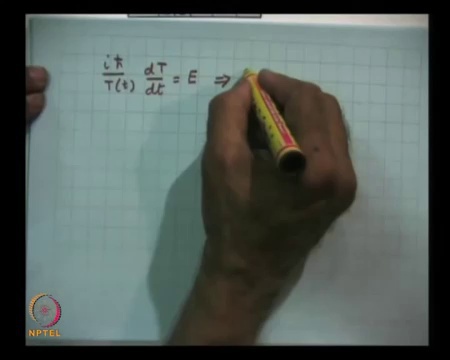 iħ/T(t) dT/dt = E ⇒
NPTEL